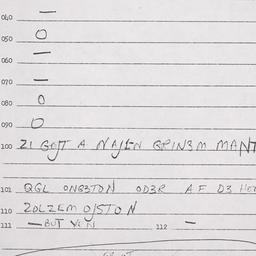 040 —
050 O
060 —
070 —
080 O
090 O
100 ZI GOTT A NAJEN GRINSM MANT
101 QGL ONGSTON OD3R AF D3 HO
110 ZOLZEM OJSTON
111 — BUT VEN 112 —